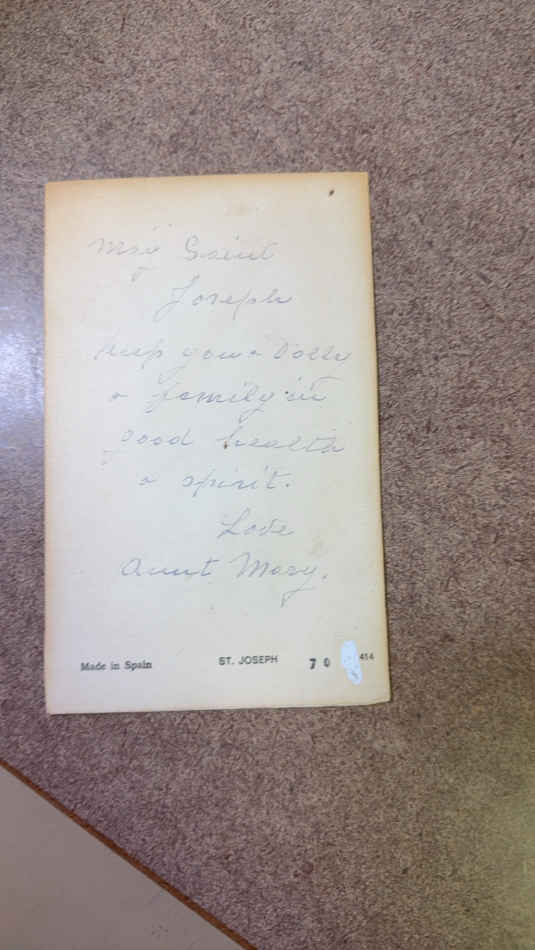 May Saint
Joseph
keep you &
& family in
good health
& spirit.
Love
Aunt Mary.
Made in Spain ST. JOSEPH 70 454